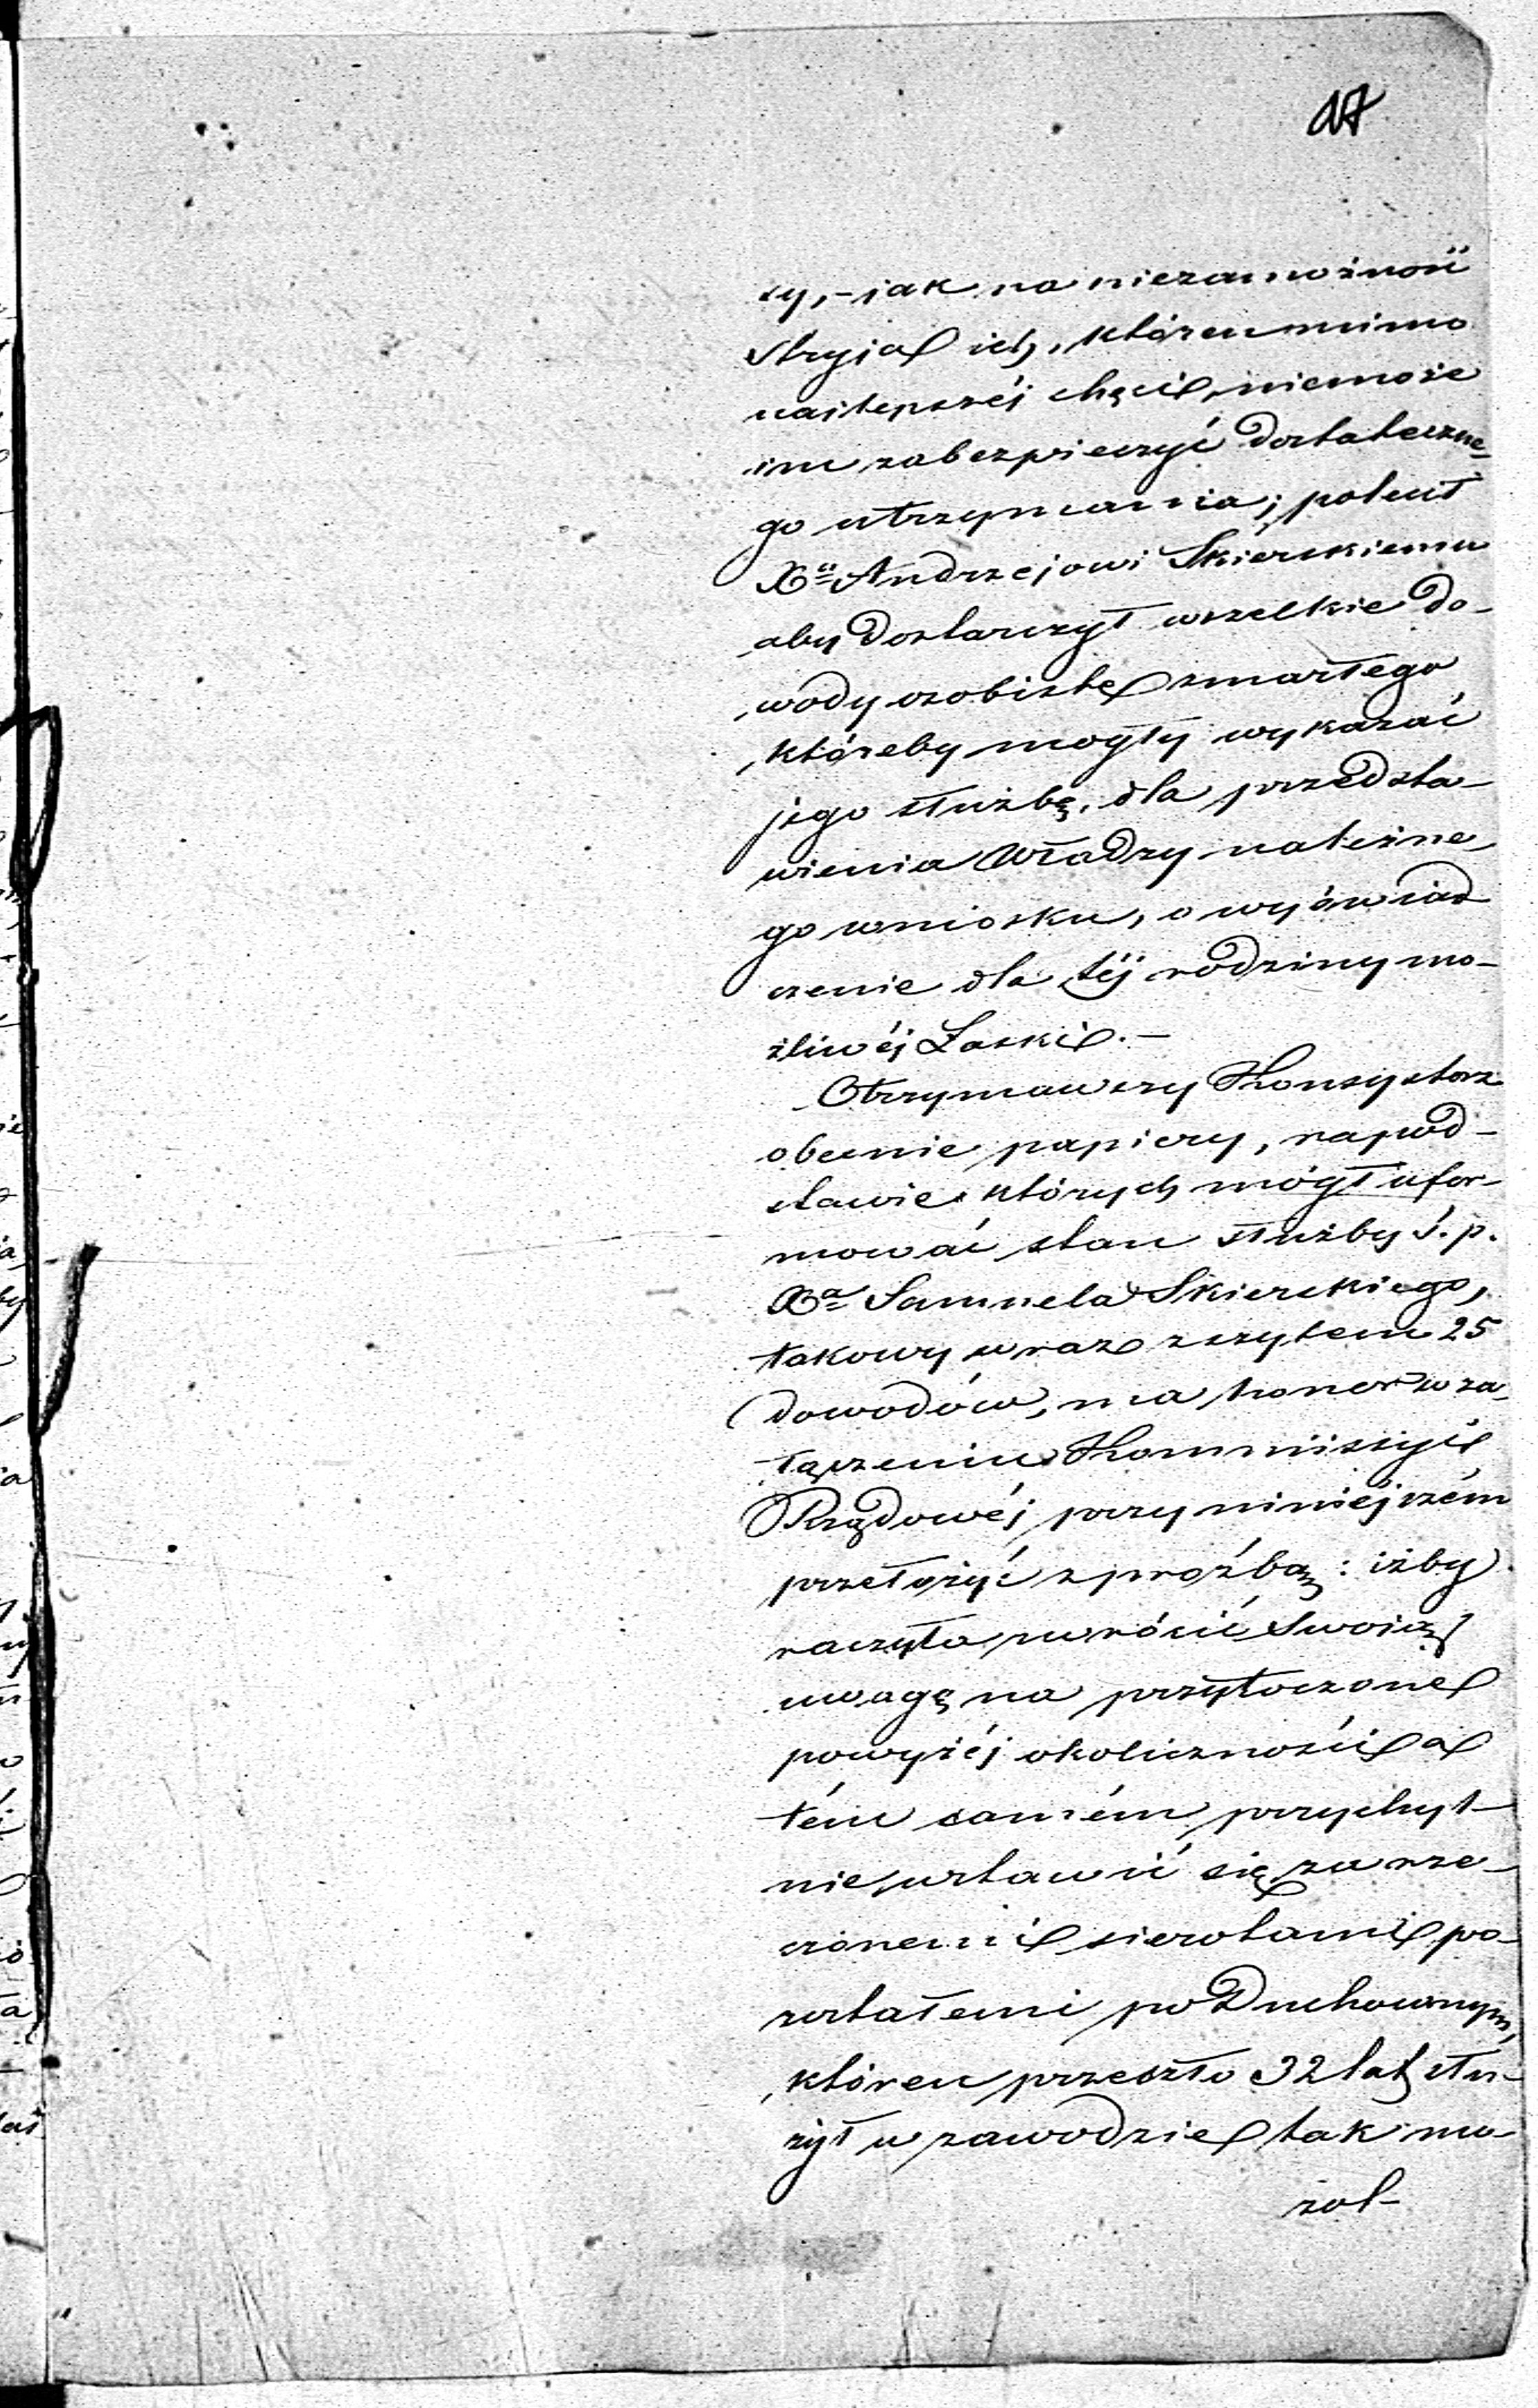 17
sy, – jak na niezamożność
Stryja ich, któren mimo
najlepszéj chęci, niemoże
im zabezpieczyć dostateczne-
go utrzymania; polecił
Xu Andrzejowi Skierskiemu
aby dostarczył wszelkie do-
wody osobiste zmarłego
któreby mogły wykazać
jego służbę, dla przedsta-
wienia Władzy należne-
go wniosku, o wyświad
czenie dla téj rodziny mo-
żliwéj Łaski. –
Otrzymawszy Konsystorz
obecnie papiery, na pod-
stawie których mógł ufor-
mować stan służby ś. p.
Xa Samuela Skierskiego,
takowy wraz z szytem 25
dowodów, ma honor w za-
łączeniu Kommissyi
Rządowéj przy niniéjszém
przełożyć z prośbą: iżby
raczyła zwrócić Swoią
uwagę na przytoczone
powyżéj okoliczności a
tém samém przychyl-
nie wstawić się za rze-
czonemi sierotami po-
zostałemi po Duchownym,
któren przeszło 32 lat słu-
żył w zawodzie tak mo-
zol-